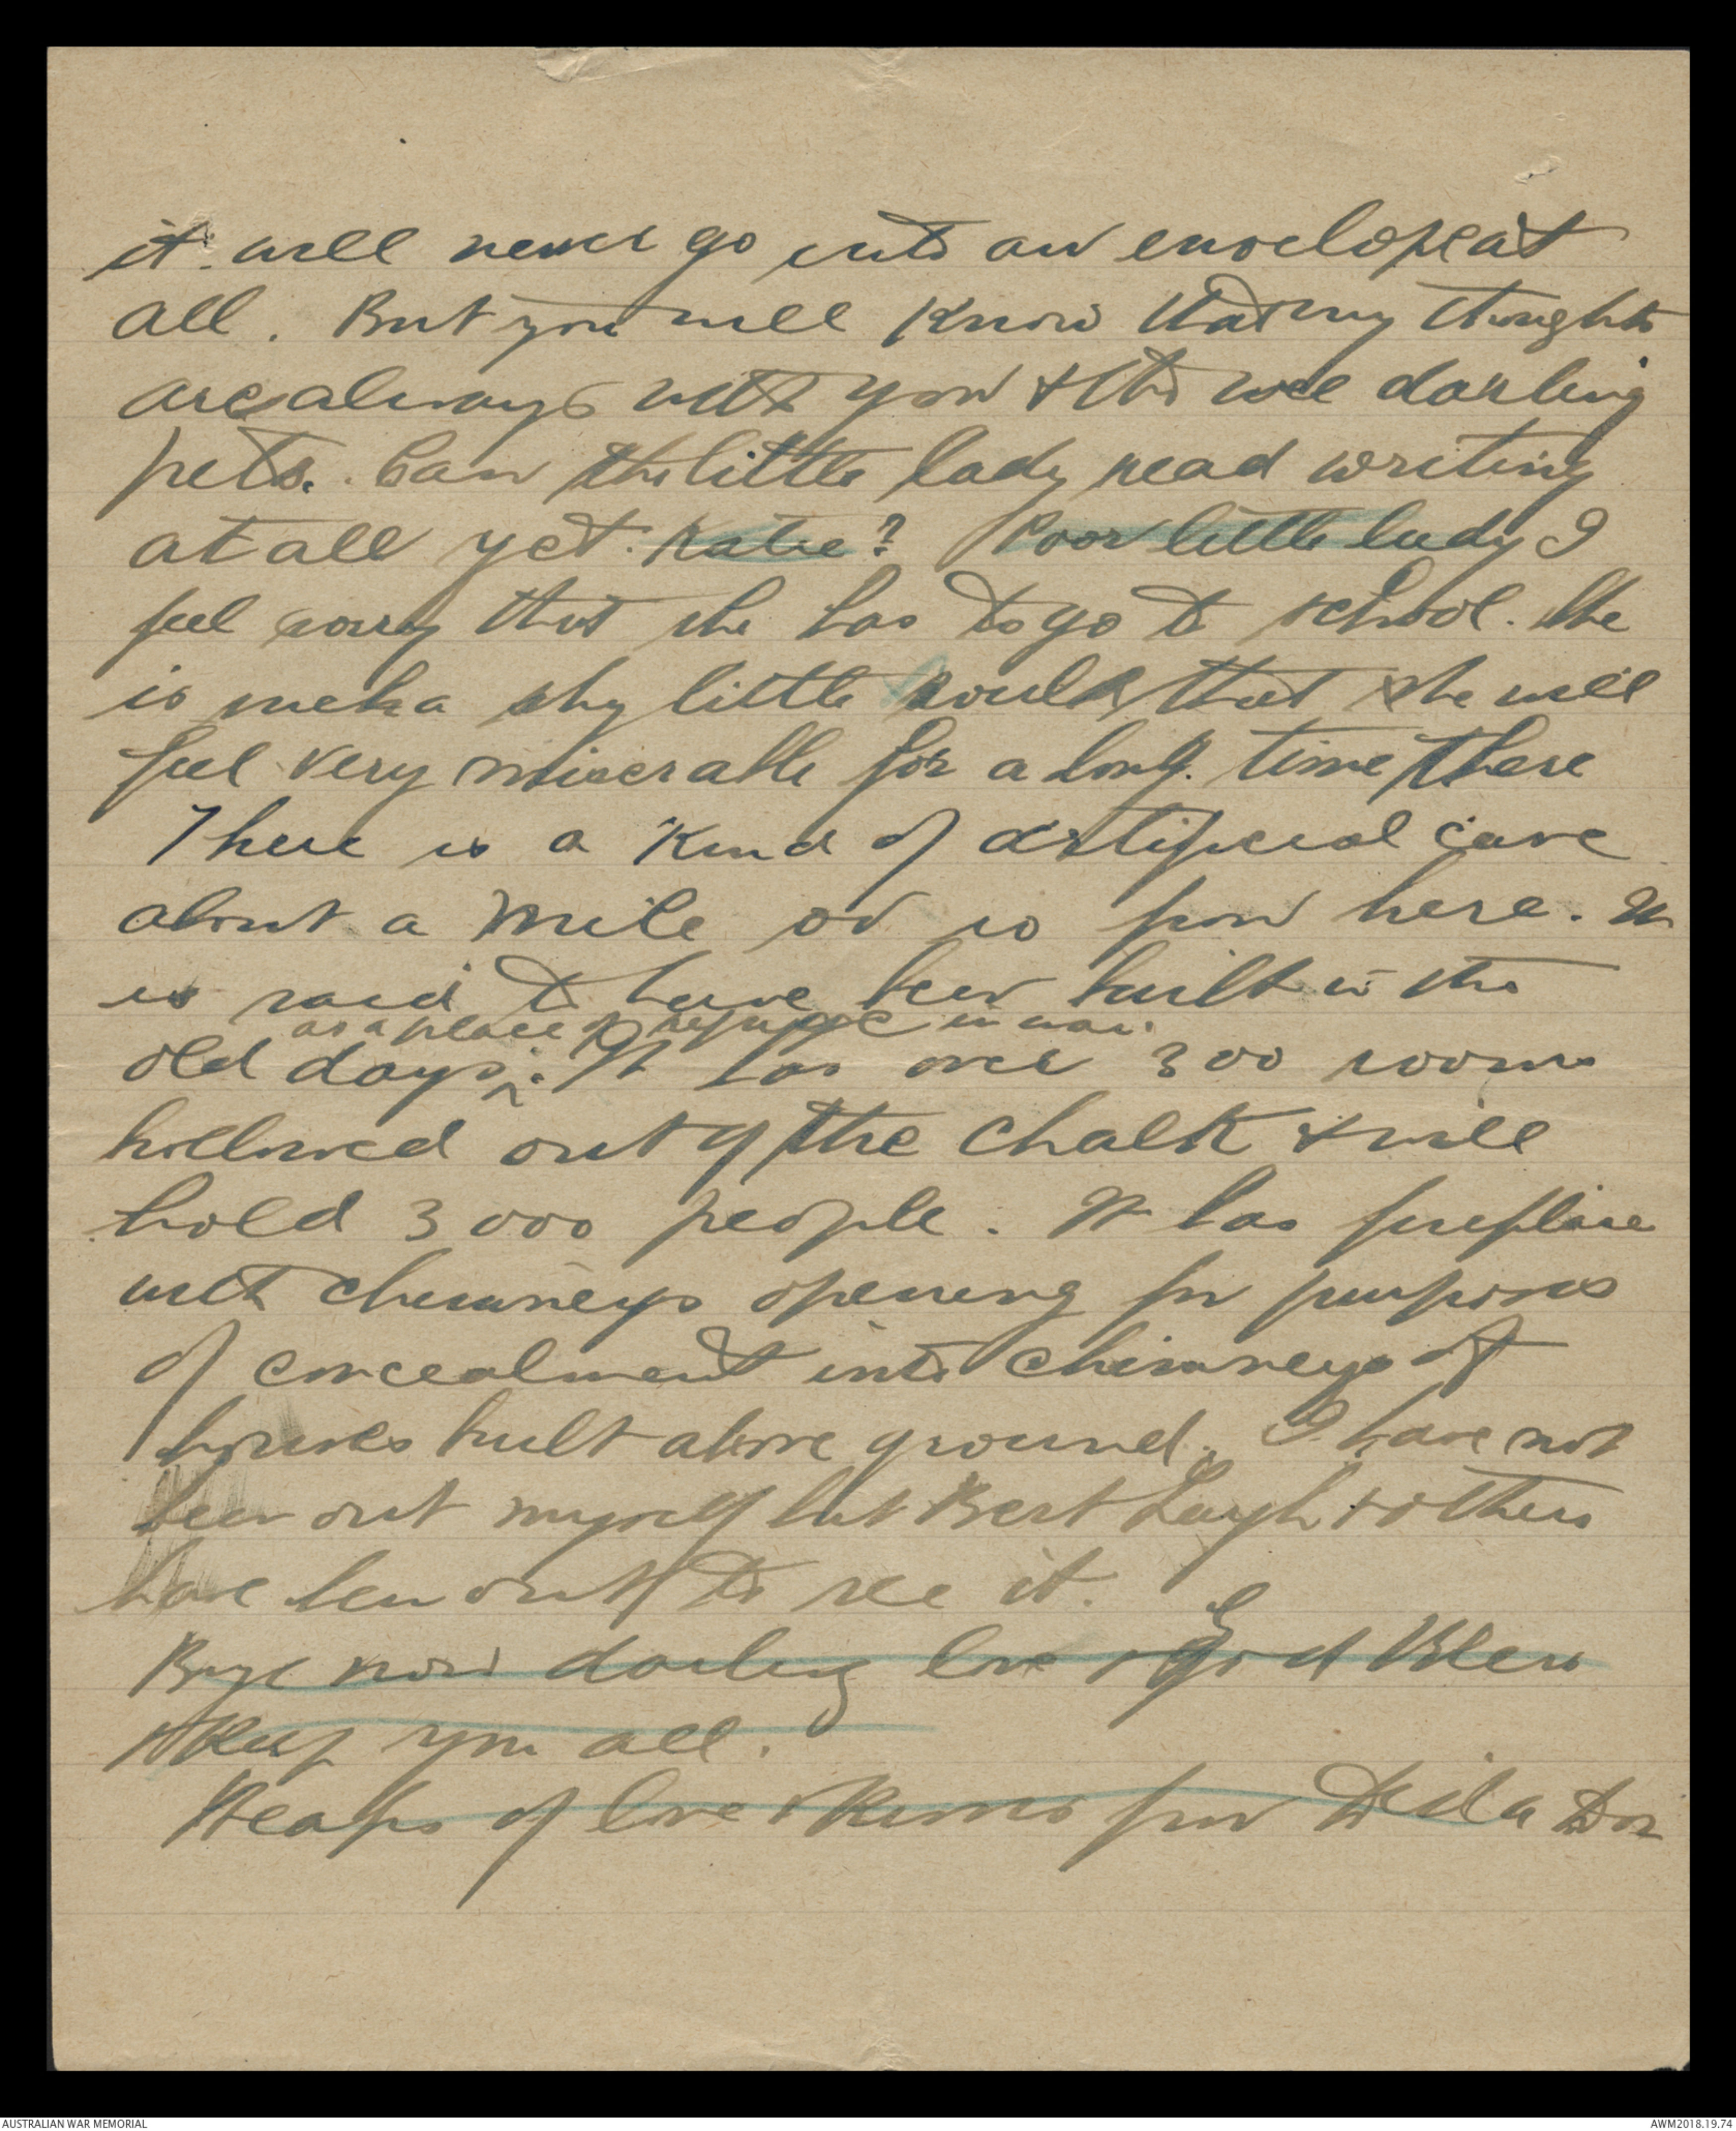 it will never go into an envelope at
all. But you will know that my thoughts
are always with you & the wee darling
pets. Can the little lady read writing
at all yet Katie? Poor little lady I
feel sorry that she has to go to school. She
is such a shy little soul that she will
feel very miserable for a long time there
There is a kind of artificial cave
about a mile or so from here. It
is said to have been built in the
as a place of refuge in war.
old days. It has over 300 rooms
hollowed out of the chalk & will
hold 3000 people. It has fireplaces
with chimneys opening for purposes
of concealment into chimneys of
houses built above ground. I have not
been out myself but Bert Layh & others
have been out to see it.
Bye now darling love & God Bless
& Keep you all.
Heaps of love & Kisses from
AUSTRALIAN WAR MEMORIAL
AWM2018.19.74